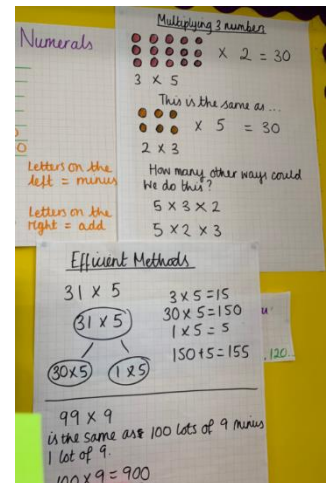 Numerals
Letters on the
left = minus
Letters on the
right = add
Multiplying 3 number
× 2 = 30
3 × 5
This is the same as ...
× 5 = 30
2 × 3
How many other ways could
we do this?
5 × 3 × 2
5 × 2 × 3
Efficient Methods
31 × 5
31 × 5
30×5 1×5
3×5=15
30×5=150
1×5=5
150+5=155
120...
99 × 9
is the same as 100 lots of 9 minus
1 lot of 9.
100×9=900